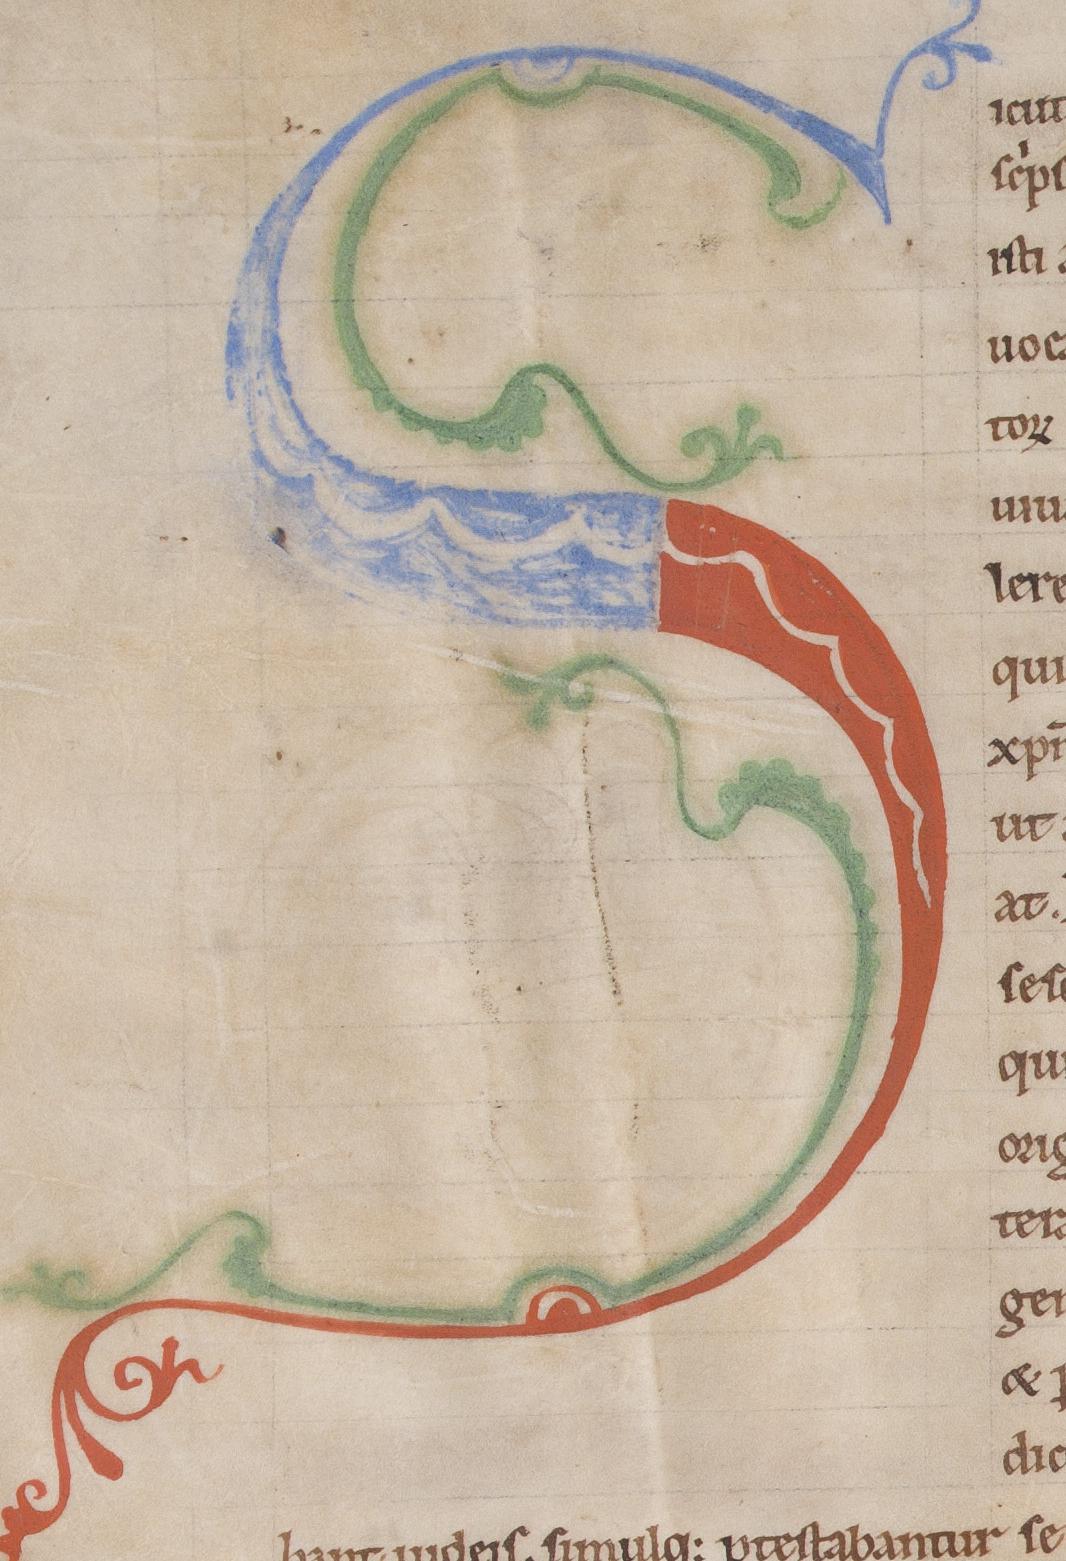 S
icut
scͥps
isti a
uoca
toꝝ
unu
lere
qui
xpī
ut a
at.
sesc
qui
orig
tera
gen
& p
dic
bant iudeis. simulq: ptestabantur se